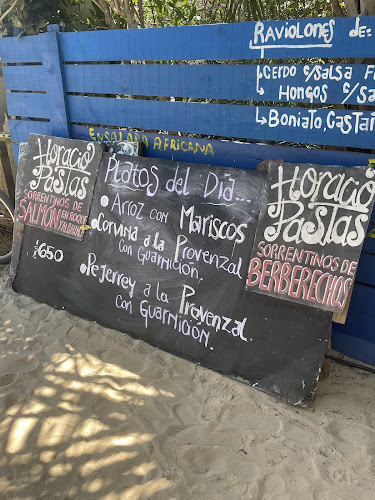 Raviolones de:
↳ Cerdo c/salsa F
Hongos c/sa
↳ Boniato, castañ
Ensalada africana
Horacio
Pastas
SORRENTINOS DE
SALMÓN
$650
Platos del Día...
• Arroz con Mariscos
• Corvina a la Provenzal
con Guarnición.
• Pejerrey a la Provenzal
con Guarnición.
Horacio
Pastas
SORRENTINOS DE
BERBERECHOS